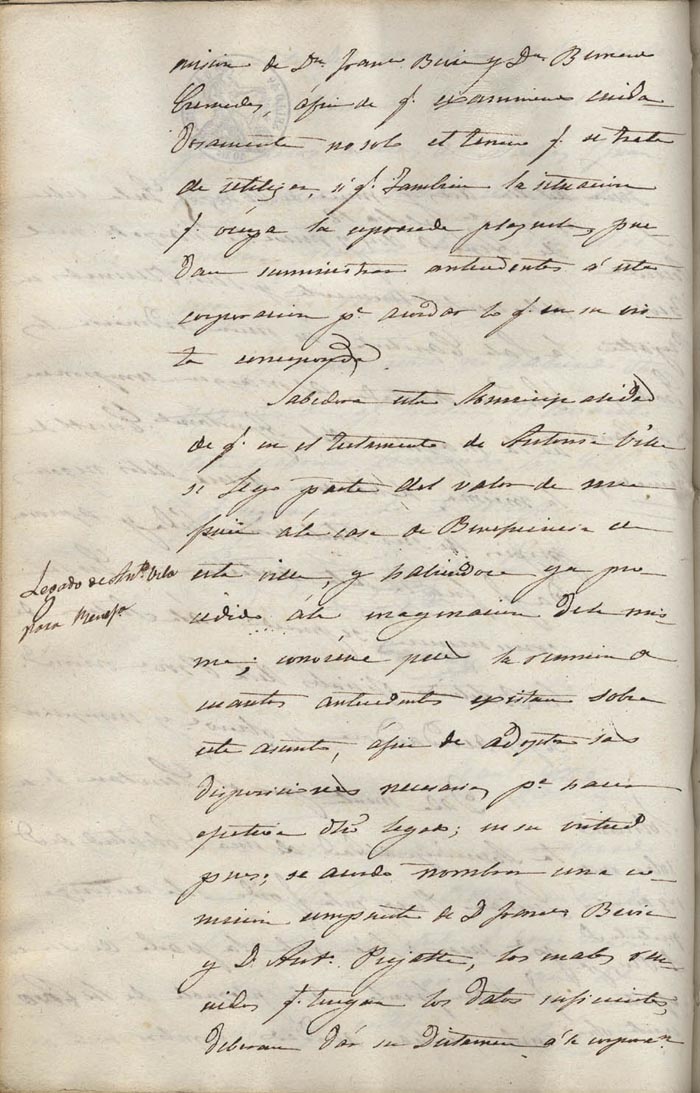 mision de Dn. Franco. Boix y Dn.
á fin de q. examinen cuida
dosamente no solo el terreno q. se trata
de utilizar, si q. tambien la situacion
q. ocupa la espresada plazuela, pue-
dan suministrar antecedentes á esta
corporacion pa. acordar lo q. en su vis-
ta corresponda.
Sabedora esta Municipalidad
de q. en el testamento de Antonia Vila
se legó parte del valor de una
á la casa de Beneficencia de
esta villa, y habiendose ya pro-
cedido á la enagenacion dela mis-
ma; conviene pues la reunion de
cuantos antecedentes existan sobre
este asunto, á fin de adoptar las
disposiciones necesarias pa. hacer
efectivo dho. legado; en su virtud
pues, se acordó nombrar una co-
mision compuesta de D. Franco. Boix
y D. Anto. los cuales reu-
nidos q. tengan los datos suficientes,
deberan dár su Dictamen á la corporan.
Legado de Anta. Vila
para